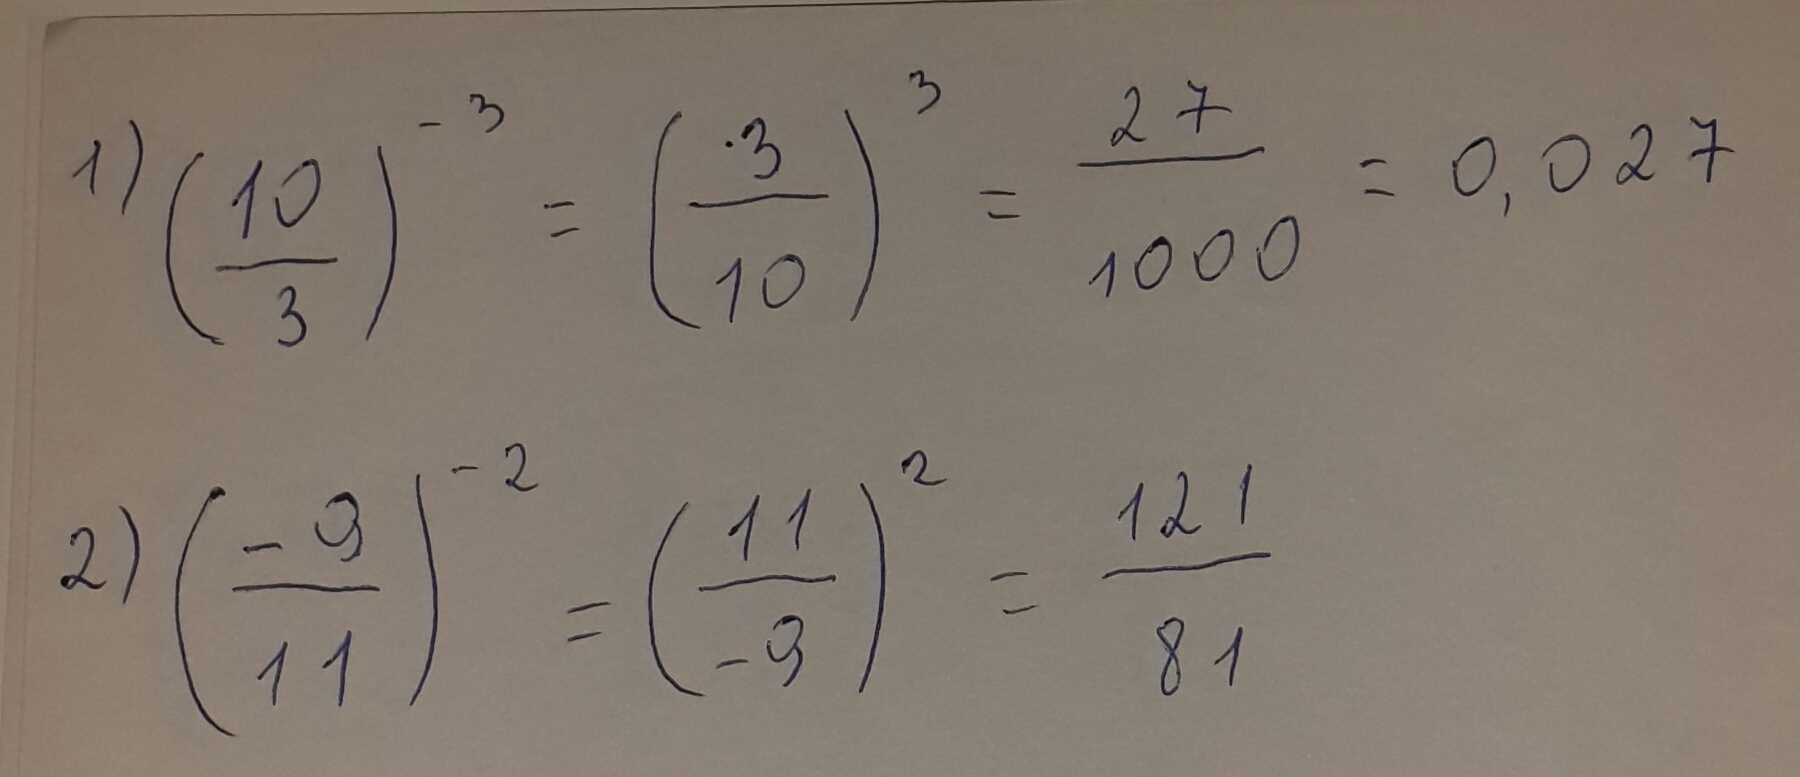 1) (10/3)^-3 = (3/10)^3 = 27/1000 = 0,027
2) (-9/11)^-2 = (11/-9)^2 = 121/81